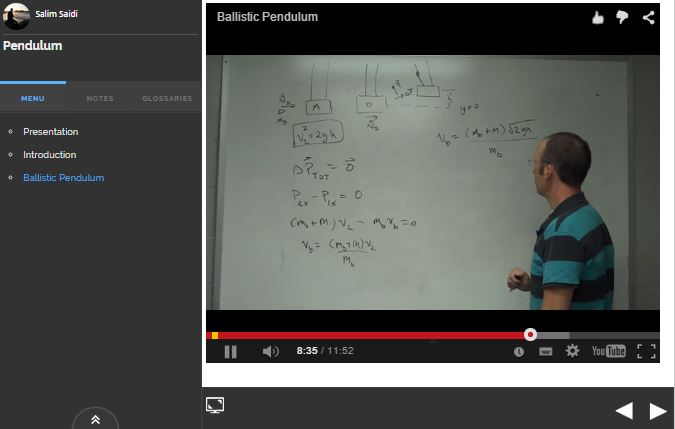 Salim Saidi
Pendulum
MENU
NOTES
GLOSSARIES
Presentation
Introduction
Ballistic Pendulum
Ballistic Pendulum
M
y=0
V₂² = 2gh
ΔP⃗_TOT = 0⃗
P₂ₓ - P₁ₓ = 0
(m_b + M) V₂ - m_b V_b = 0
V_b = (m_b + M) V₂ / m_b
V_b = (m_b + M) √2gh / m_b
8:35 / 11:52
YouTube